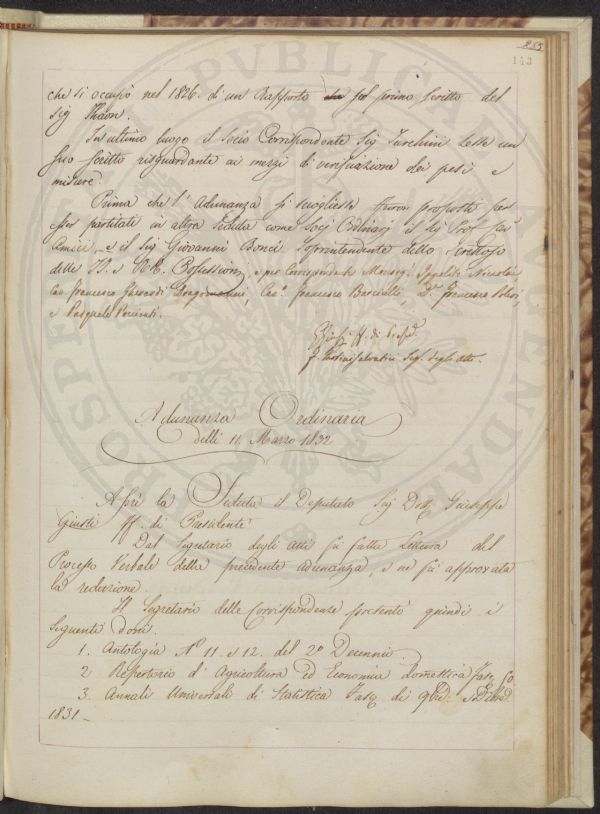 255
143
che si occupò nel 1826. di un Rapporto sul primo scritto del
Sig Thaon.
In ultimo luogo il Socio Corrispondente Sig Turchini Lesse un
suo scritto risguardante ai mezzi di verificazione dei pesi e
misure.
Prima che l'Adunanza si sciogliesse furon proposti per
esser partitati in altra seduta come Socj Ordinarj il Sig Prof
Amici, e il Sig Giovanni Bonci Soprintendente dello Scrittojo
delle II. e RR. Possessioni, e per Corrispondenti Monsig. Ippolito
Cav Francesco Cav. Francesco D. Francesco
e Pasquale
ff. di Presid.
Seg. degli Atti
Adunanza Ordinaria
delli 11. Marzo 1832
Aprì la Seduta il Deputato Sig Dott Giuseppe
Giusti ff. di Presidente
Dal Segretario degli atti fù fatta Lettura del
Processo Verbale della precedente adunanza, e ne fù approvata
la redazione.
Il Segretario delle Corrispondenze presentò quindi i
Seguenti doni.
1. Antologia No 11. e 12. del 2o Decennio
2 Repertorio d'Agricoltura ed Economia domestica Fasc 50
3. Annali Universali di Statistica Fasc di 9bre e Xbre
1831_
PROSPERITATI PUBLICAE AUGENDAE